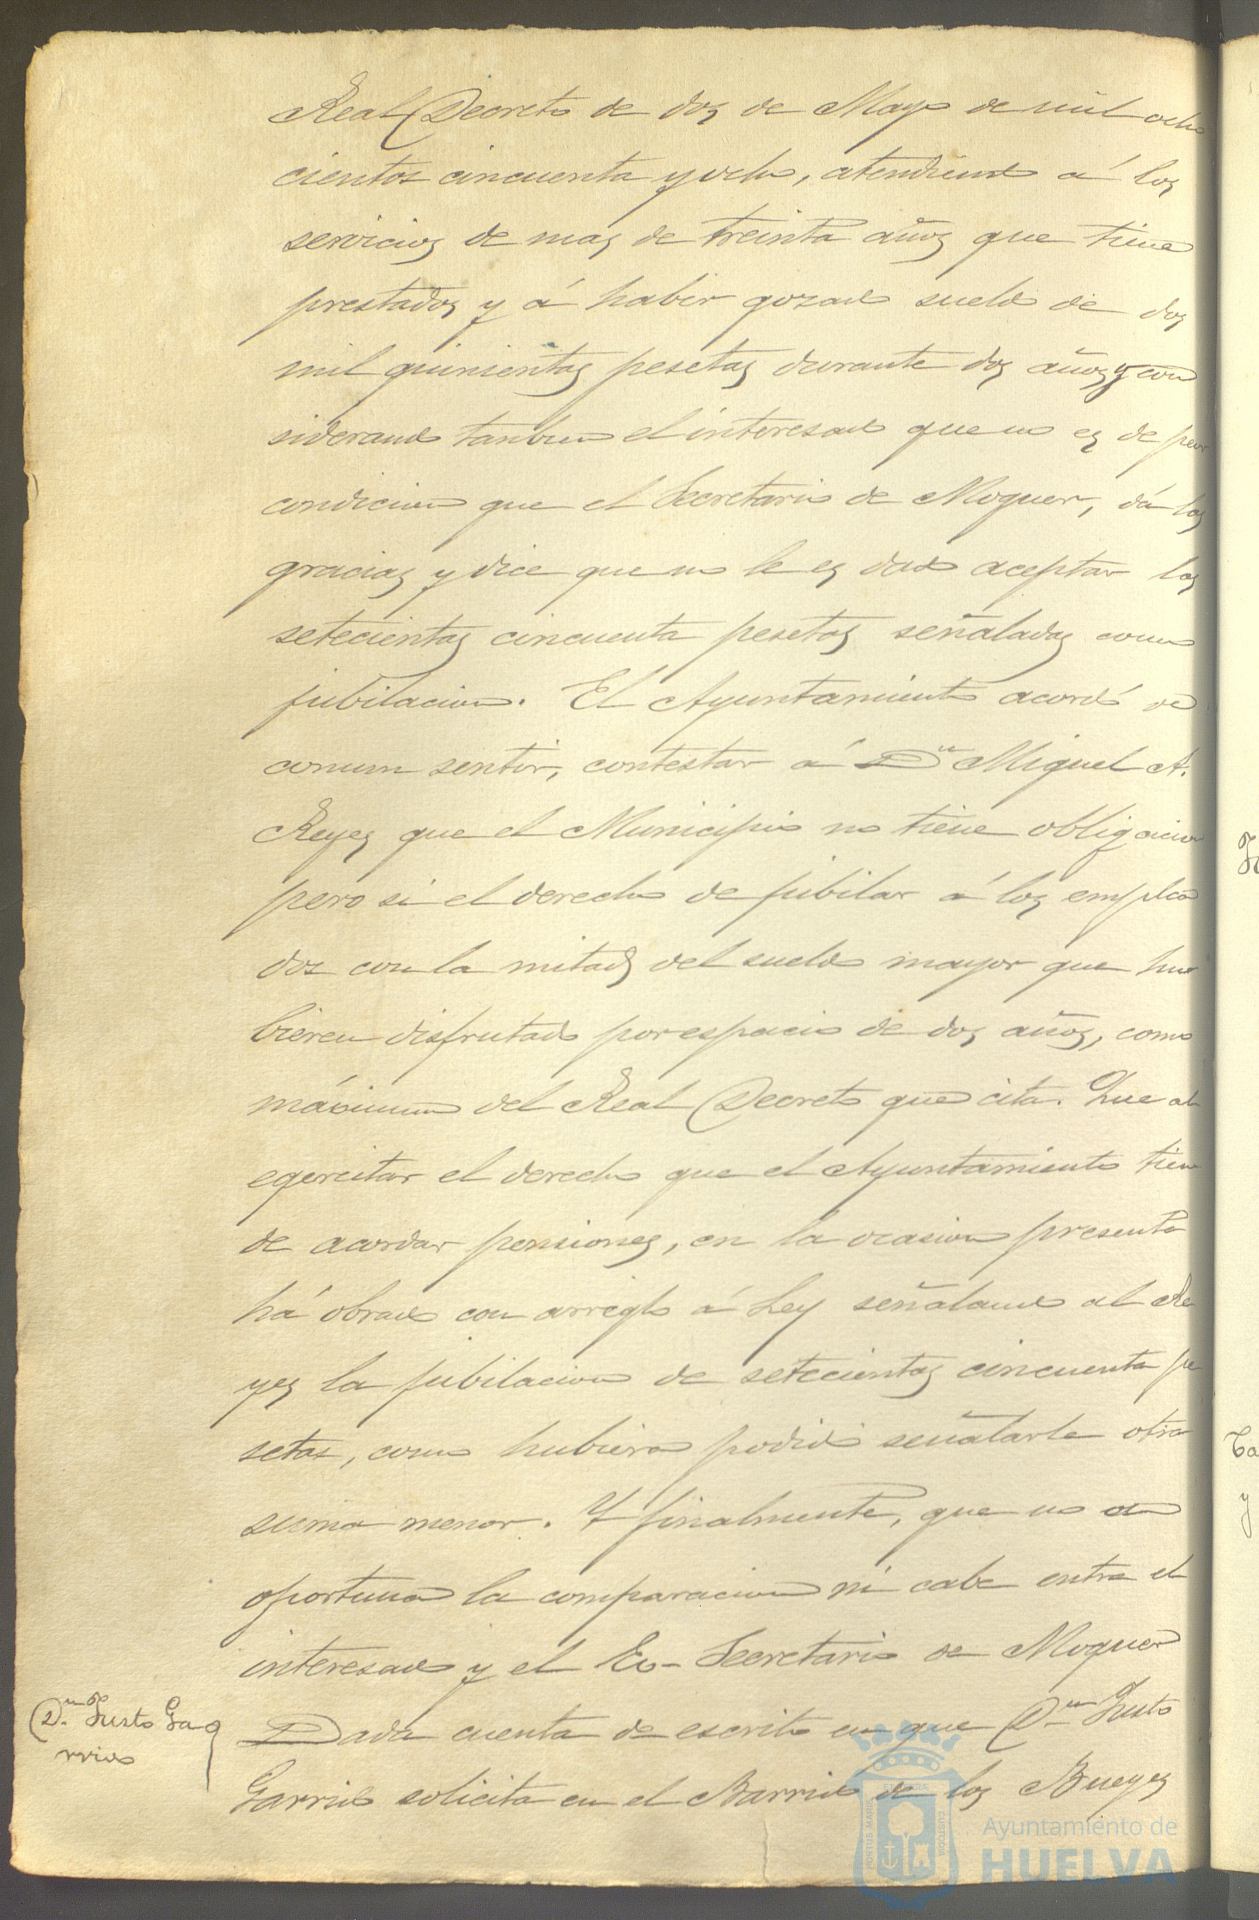 Real Decreto de dos de Mayo de mil ocho
cientos cincuenta y ocho, atendiendo á los
servicios de mas de treinta años que tiene
prestados y á haber gozado sueldo de dos
mil quinientas pesetas durante dos años, y con
siderando tambien el interesado que no es de peor
condicion que el Secretario de Moguer, dá las
gracias y dice que no le es dado aceptar las
setecientas cincuenta pesetas señaladas como
jubilacion. El Ayuntamiento acordó de
comun sentir, contestar á Dn Miguel A.
Reyes que el Municipio no tiene obligacion
pero si el derecho de jubilar á los emplea
dos con la mitad del sueldo mayor que hu
bieren disfrutado por espacio de dos años, como
máximum del Real Decreto que cita. Que al
egercitar el derecho que el Ayuntamiento tiene
de acordar pensiones, en la ocasion presente
há obrado con arreglo á Ley señalando al Re
yes la jubilacion de setecientas cincuenta pe
setas, como hubiera podido señalarle otra
suma menor. Y finalmente, que no es
oportuna la comparacion ni cabe entre el
interesado y el Ex-Secretario de Moguer
Dn. Justo Ga
rrido
Dada cuenta de escrito en que Dn Justo
Garrido solicita en el Barrio de los Bueyes
Ayuntamiento de
HUELVA